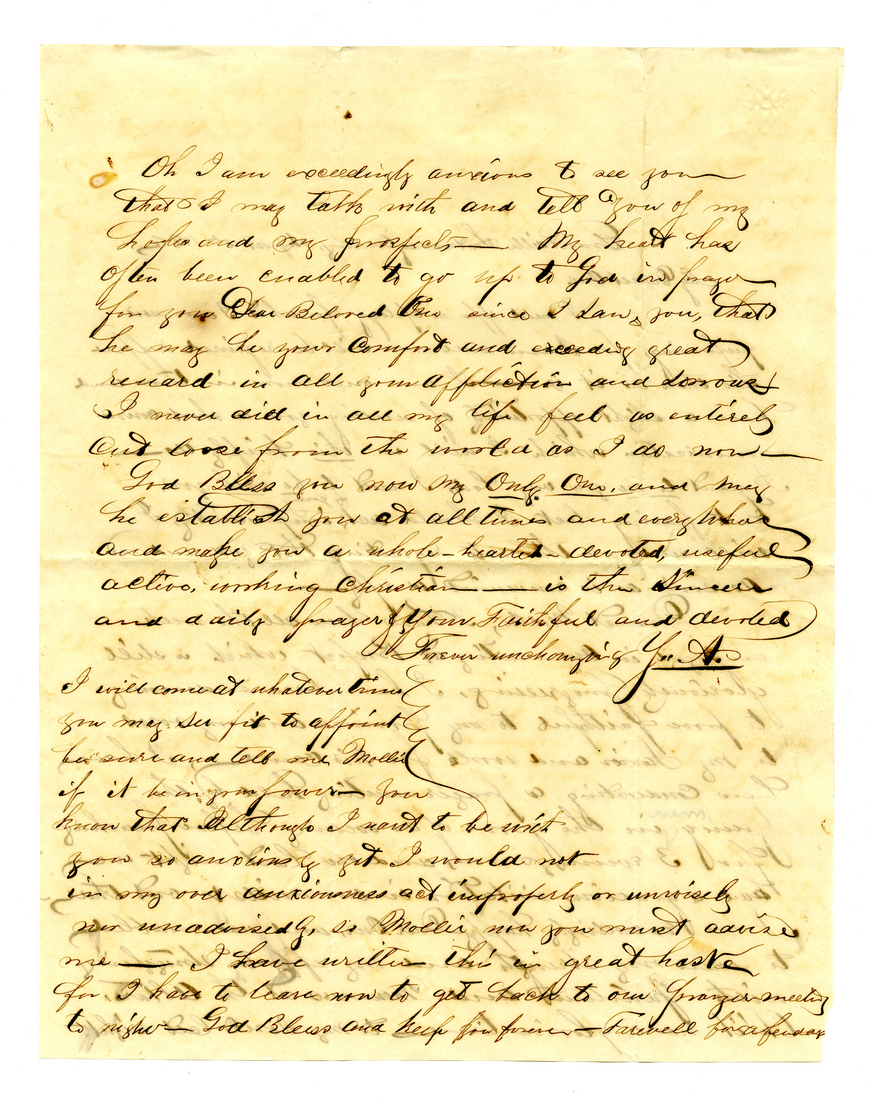 Oh I am exceedingly anxious to see you
that I may talk with and tell you of my
hopes and my prospects — My heart has
often been enabled to go up to God in prayer
for you Dear Beloved One since I saw you, that
he may be your comfort and exceeding great
reward in all your affliction and sorrows
I never did in all my life feel as entirely
cut loose from the world as I do now —
God Bless you now my Only One, and may
he establish you at all times and everywhere
and make you a whole-hearted - devoted, useful
active, working Christian — is the sincere
and daily prayer of Your Faithful and devoted
Forever unchanging
I will come at whatever time
you may see fit to appoint
be sure and tell me Mollie
if it be in your power — you
know that Although I want to be with
you so anxiously yet I would not
in my over anxiousness act improperly or unwisely
nor unadvisedly, so Mollie now you must advise
me — I have written this in great haste
for I have to leave now to get back to our prayer meeting
to night — God Bless and keep you forever — Farewell for a few days